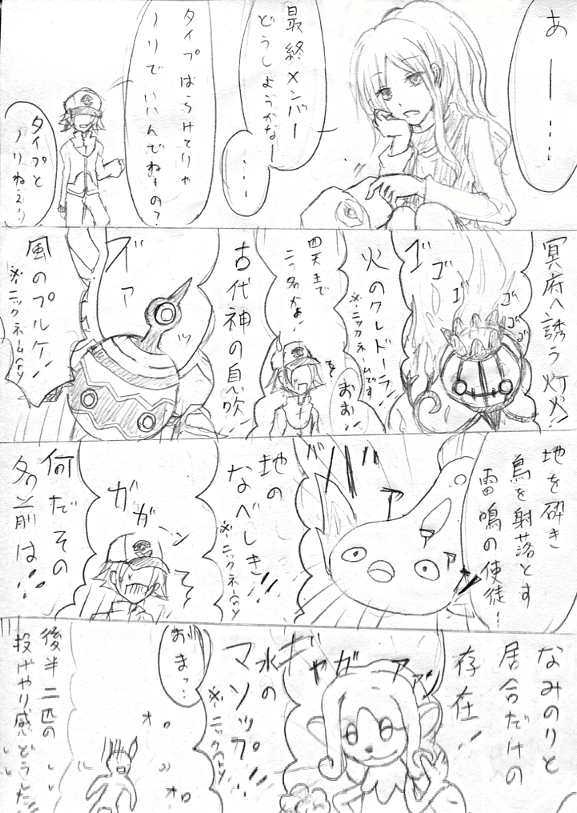 あーー…
最終メンバー
どうしようかな…
…
タイプばらけてりゃ
ノリでいいんでねぇの？
タイプと
ノリねぇ…
冥府へ誘う灯火!!
ゴゴゴ
ゴゴゴ
火のクレドーフ!
※ニックネームです
おお!
四天まで
二つ名かよ!
古代神の息吹
ズァァッ
風のプルケ!
※ニックネームなんで
地を砕き
鳥を射落とす
雷鳴の使徒…
ズァアァァ
地の
なべしき!!
※ニックネームなんで
ガガーン
何だその
名前は!!
なみのりと
居合だけの
存在!!
ギャガァァッ
水の
マソップ!!
※ニックネームなんで
おまっ…
オロ
オロ
後半二匹の
投げやり感どうした!!